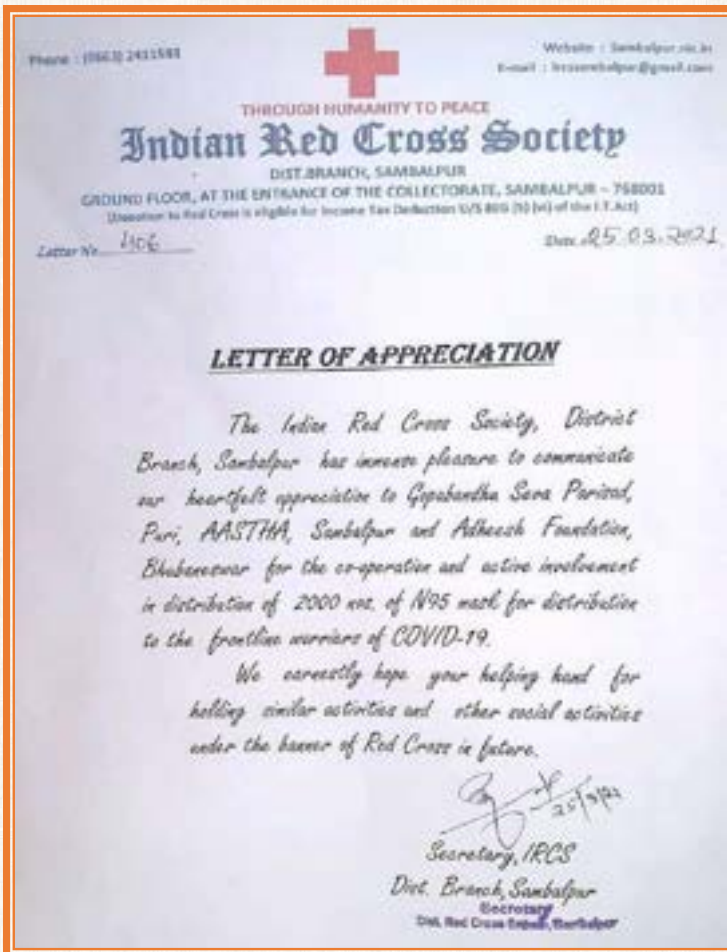 Phone : (0663) 2411583
Website : Sambalpur.nic.in
E-mail : ircssambalpur@gmail.com
THROUGH HUMANITY TO PEACE
Indian Red Cross Society
DIST.BRANCH, SAMBALPUR
GROUND FLOOR, AT THE ENTRANCE OF THE COLLECTORATE, SAMBALPUR – 768001
(Donation to Red Cross is eligible for Income Tax Deduction U/S 80G (5) (vi) of the I.T.Act)
Letter No 406
Date 25.03.2021
LETTER OF APPRECIATION
The Indian Red Cross Society, District
Branch, Sambalpur has immense pleasure to communicate
our heartfelt appreciation to Gopabandhu Seva Parisad,
Puri, AASTHA, Sambalpur and Adheesh Foundation,
Bhubaneswar for the co-operation and active involvement
in distribution of 2000 nos. of N95 mask for distribution
to the frontline warriors of COVID-19.
We earnestly hope your helping hand for
holding similar activities and other social activities
under the banner of Red Cross in future.
25/3/21
Secretary, IRCS
Dist. Branch, Sambalpur
Secretary
Dist. Red Cross Branch, Sambalpur